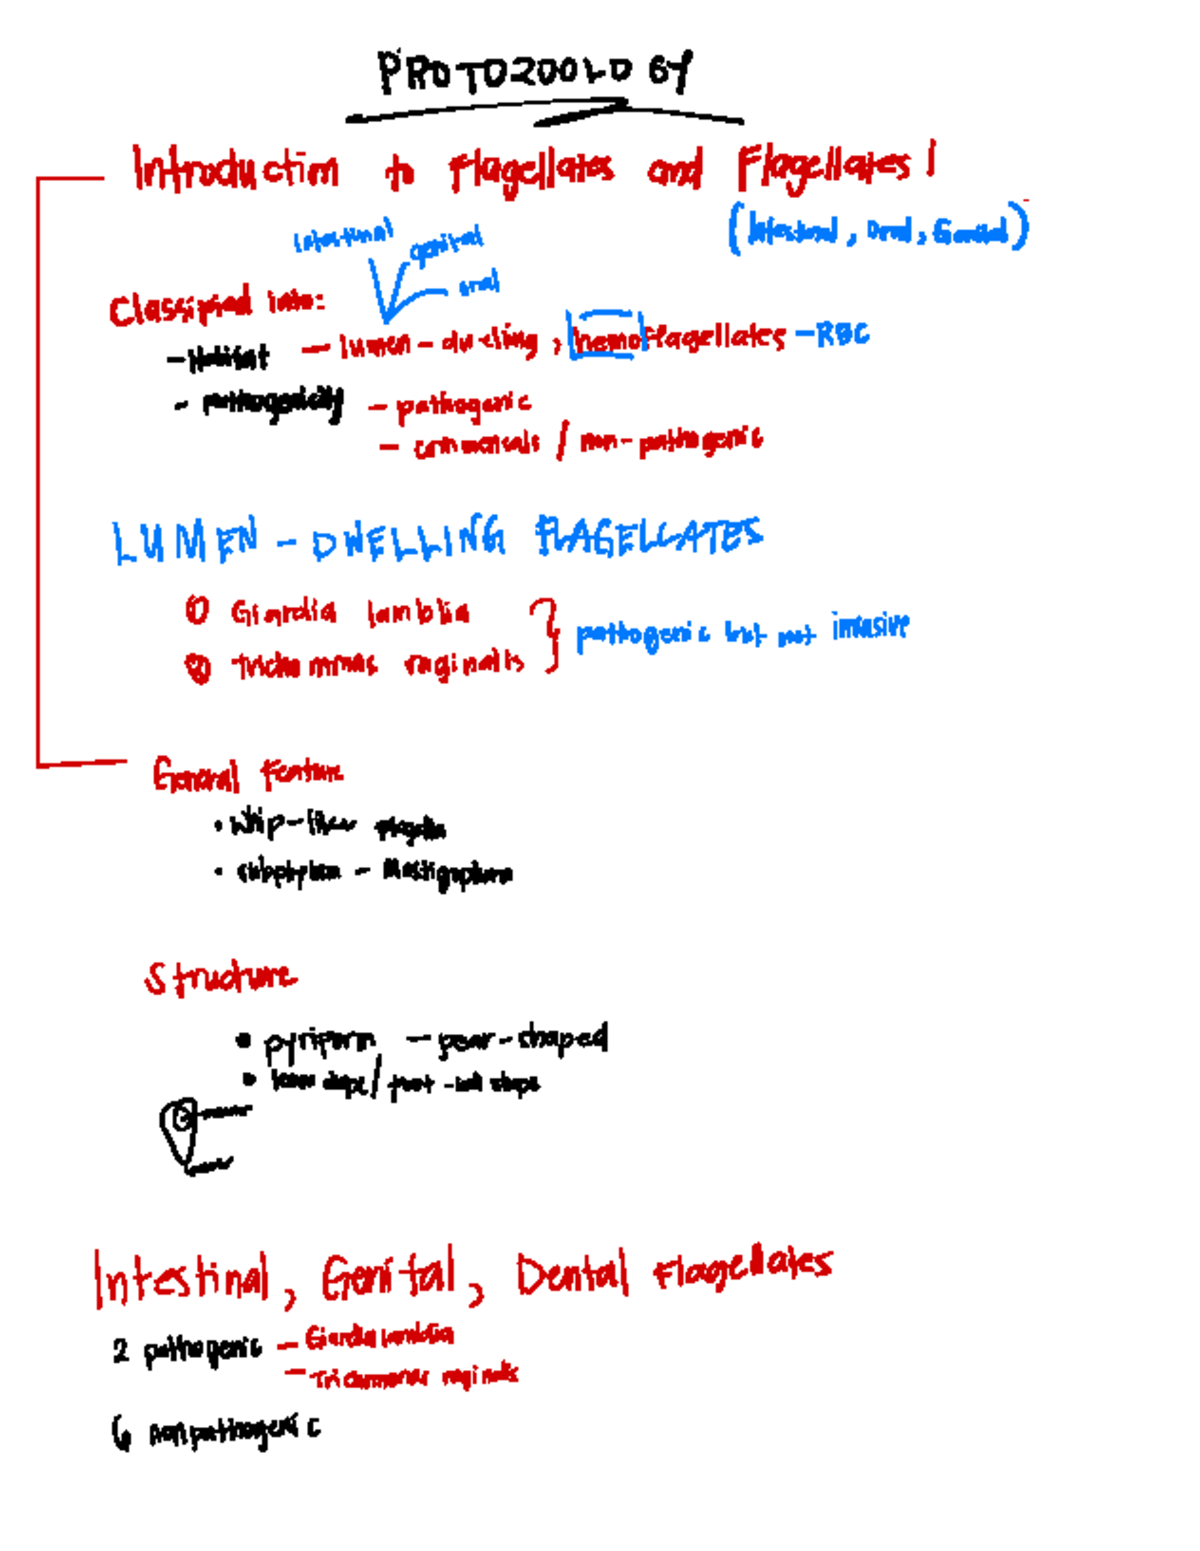 PROTOZOOLOGY
Introduction to Flagellates and Flagellates I
(Intestinal, Oral, Genital)
intestinal genital
oral
Classified into:
- Habitat - lumen-dwelling, hemoflagellates - RBC
- pathogenicity - pathogenic
- commensals / non-pathogenic
LUMEN-DWELLING FLAGELLATES
① Giardia lamblia
② Trichomonas vaginalis } pathogenic but not invasive
General Feature
• whip-like flagella
• subphylum - Mastigophora
Structure
• pyriform - pear-shaped
• / shape
Intestinal, Genital, Dental Flagellates
2 pathogenic - Giardia lamblia
- Trichomonas vaginalis
6 nonpathogenic